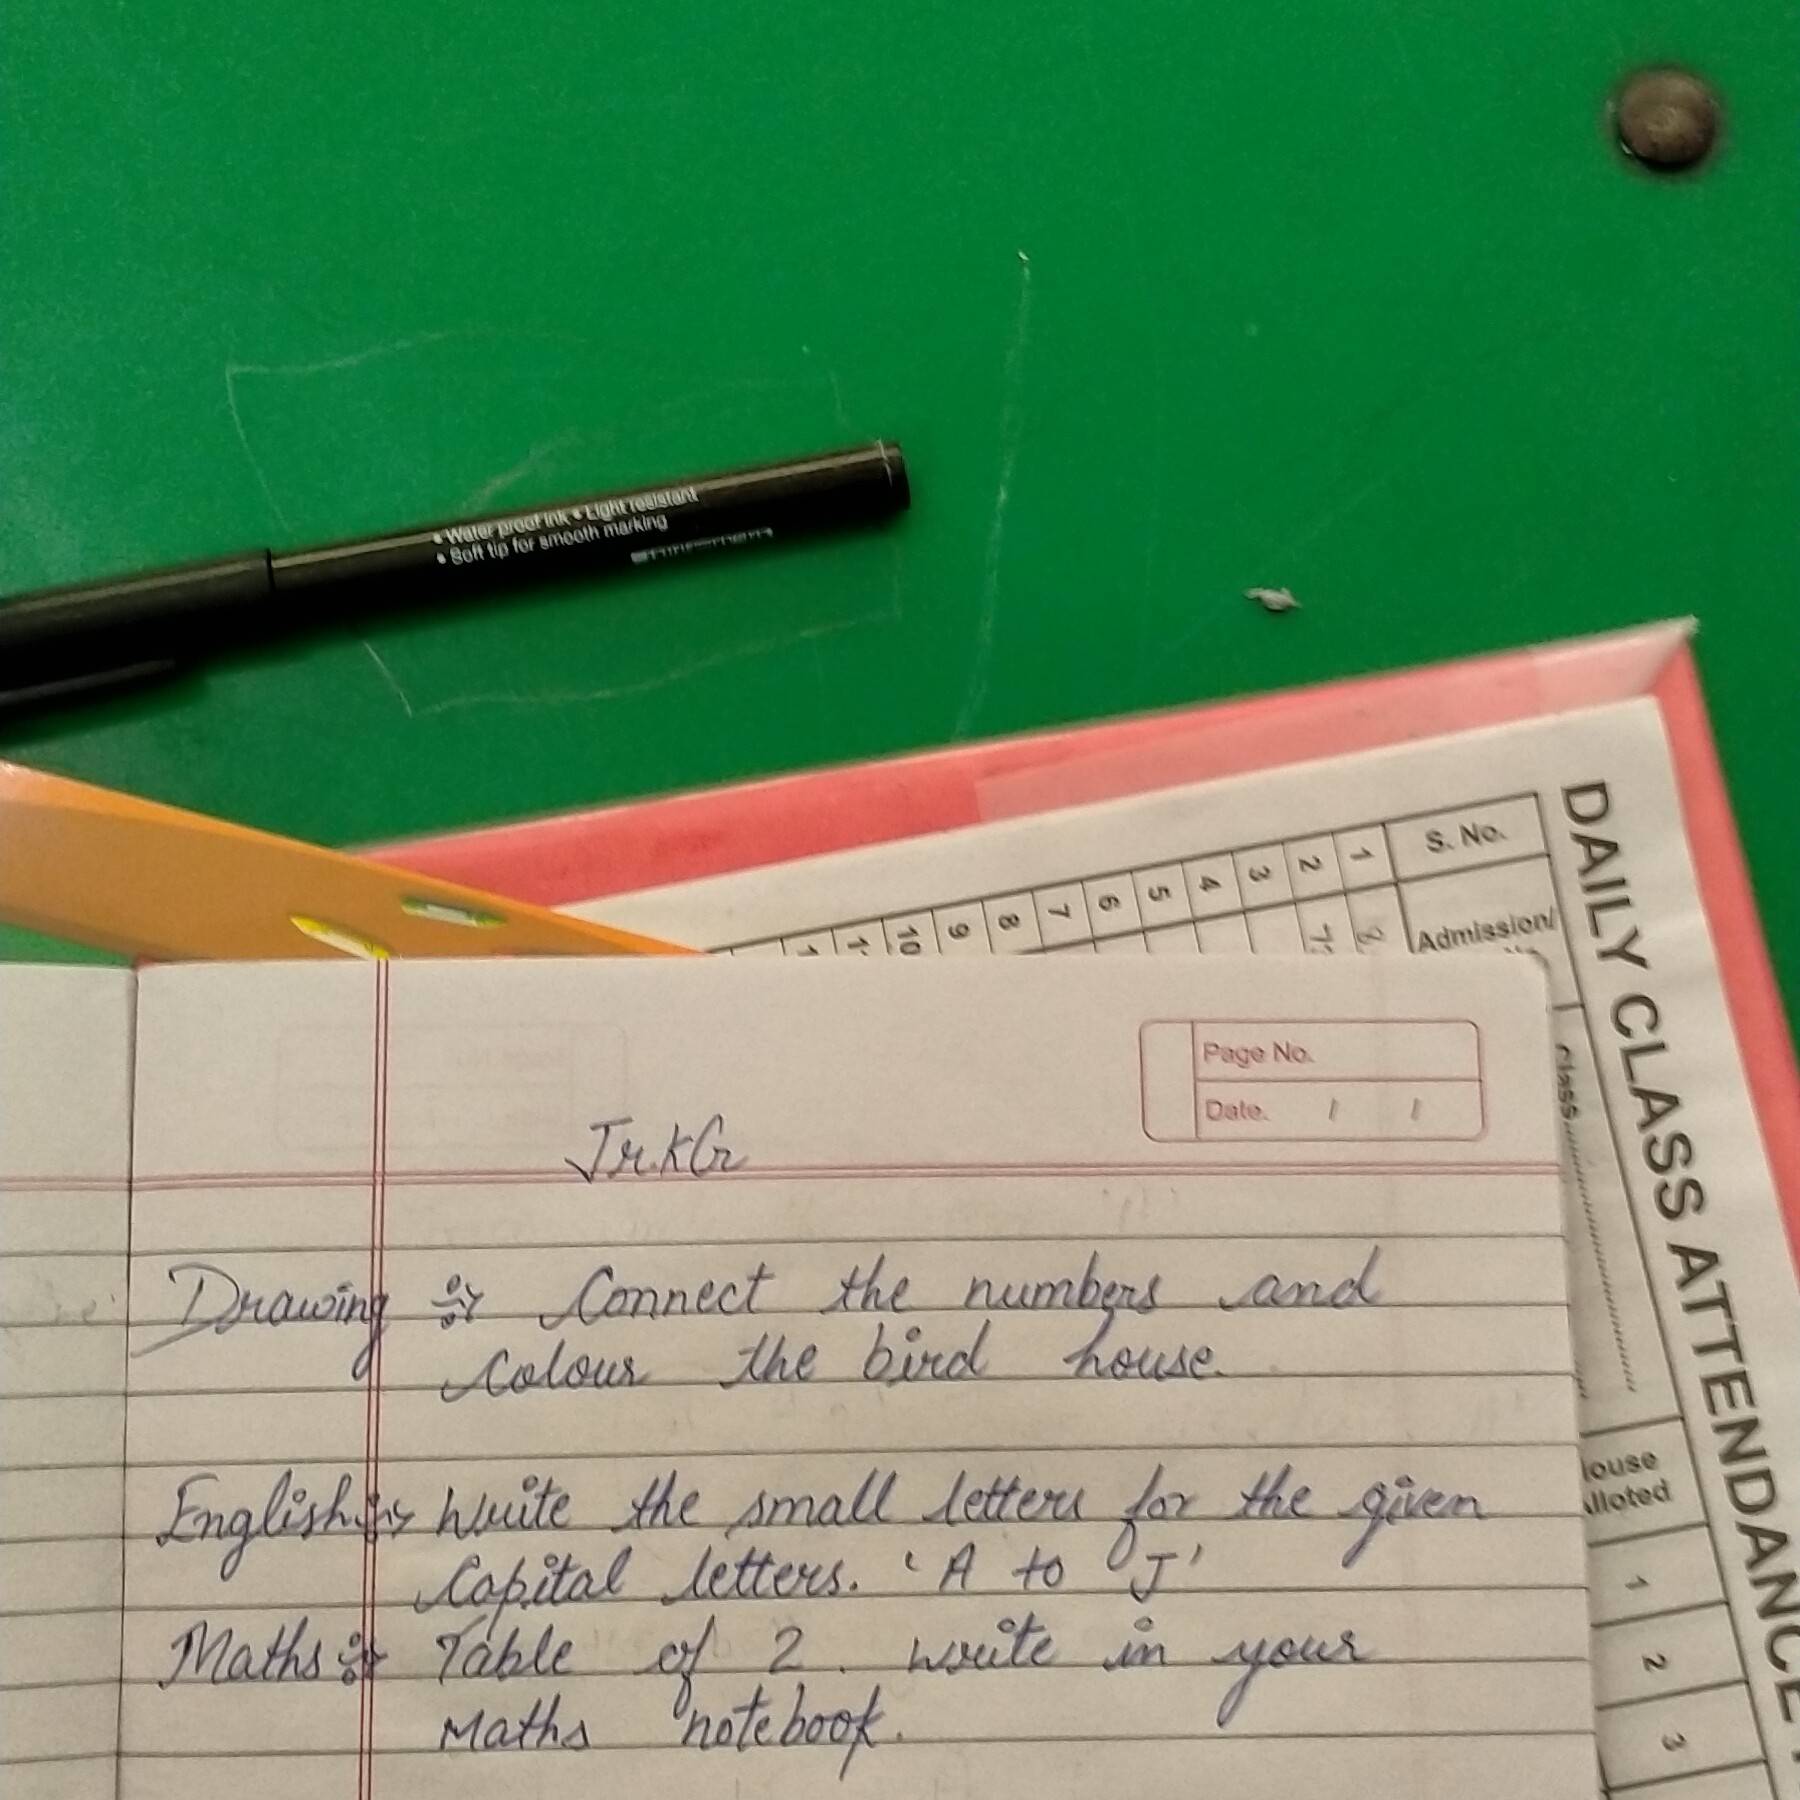 • Water proof ink • Light resistant
• Soft tip for smooth marking
DAILY CLASS ATTENDANCE
S. No. 1 2 3 4 5 6 7 8 9 10
Admission/
Class
1
2
3
Page No.
Date. / /
Jr.KG
Drawing :- Connect the numbers and
Colour the bird house.
English :- Write the small letters for the given
Capital letters. 'A to J'
Maths :- Table of 2. write in your
Maths notebook.